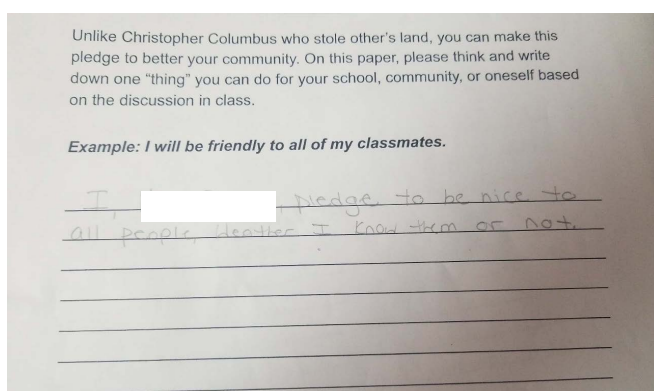 Unlike Christopher Columbus who stole other's land, you can make this
pledge to better your community. On this paper, please think and write
down one “thing” you can do for your school, community, or oneself based
on the discussion in class.
Example: I will be friendly to all of my classmates.
I, , pledge to be nice to
all people, I know them or not.